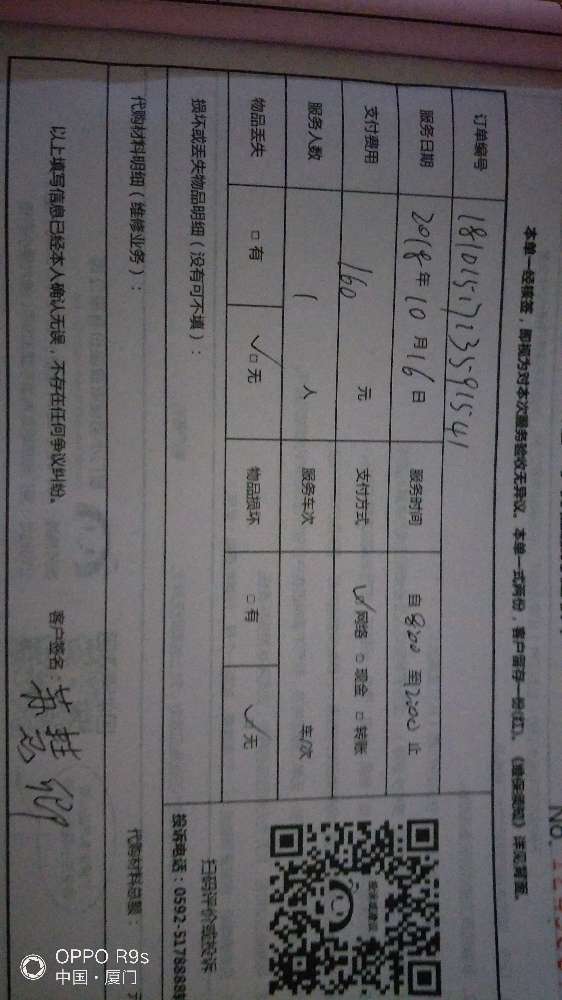 本单一经接签，即视为对本次服务验收无异议。本单一式两份，客户留存一份(红)。
订单编号 181015171359154
服务日期 2018年10月16日 服务时间 自 8:00 至 12:00 止
支付费用 160 元 支付方式 ✓网络 □现金 □转账
服务人数 1 人 服务车次 车/次
物品丢失 □有 ✓□无 物品损坏 □有 ✓无
损坏或丢失物品明细（没有可不填）：
扫码评价或投诉
投诉电话：0592-5178888
代购材料明细（维修业务）： 代购材料总额：
以上填写信息已经本人确认无误，不存在任何争议纠纷。 客户签名：
OPPO R9s
中国·厦门